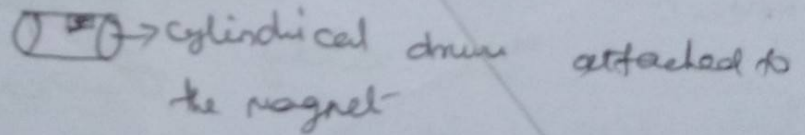 → cylindrical drum attached to
the magnet